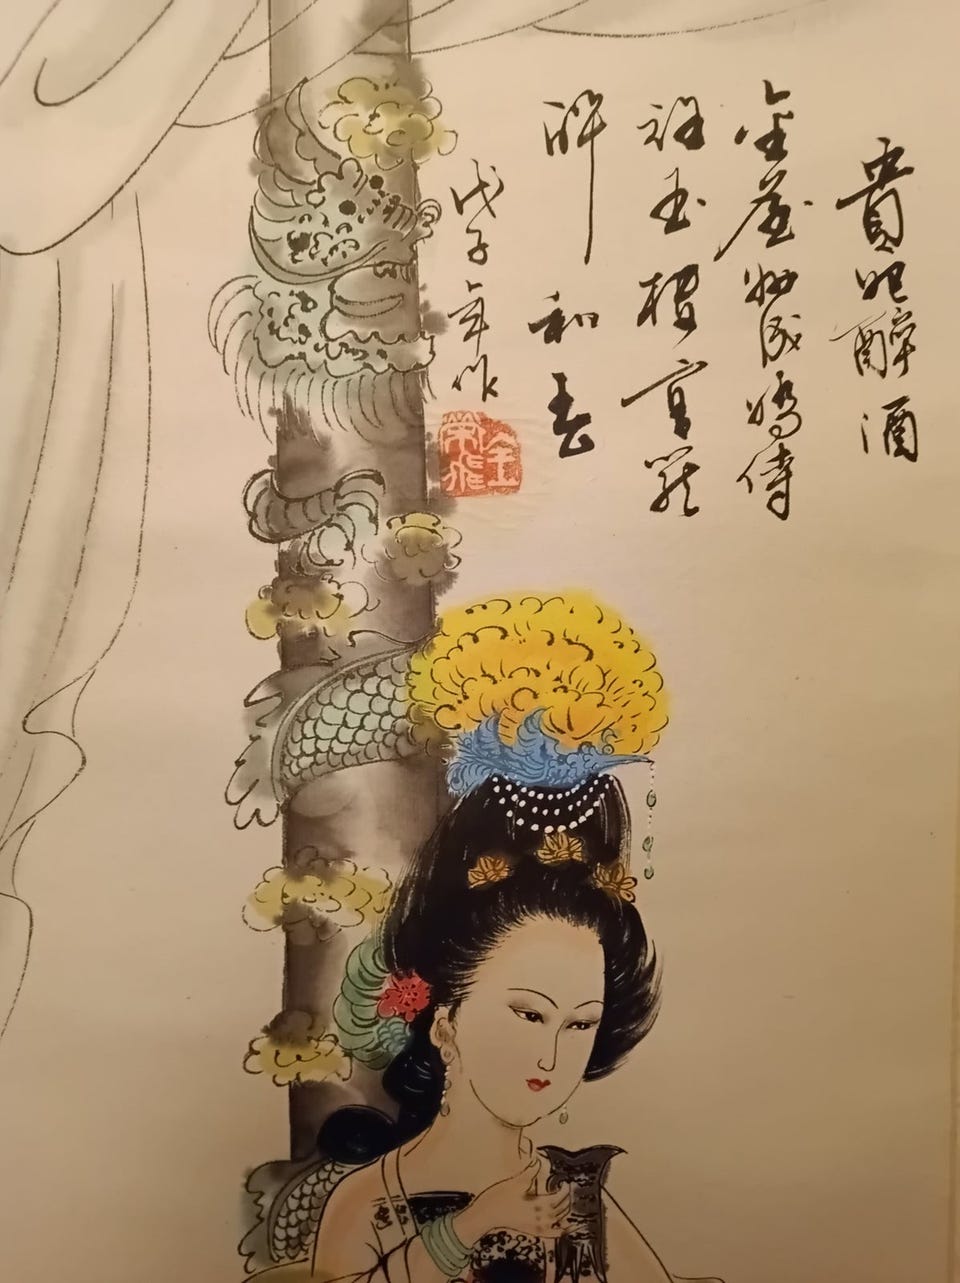 貴妃醉酒
金屋妝成嬌侍
夜玉樓宴罷
醉和春
戊子年作
金